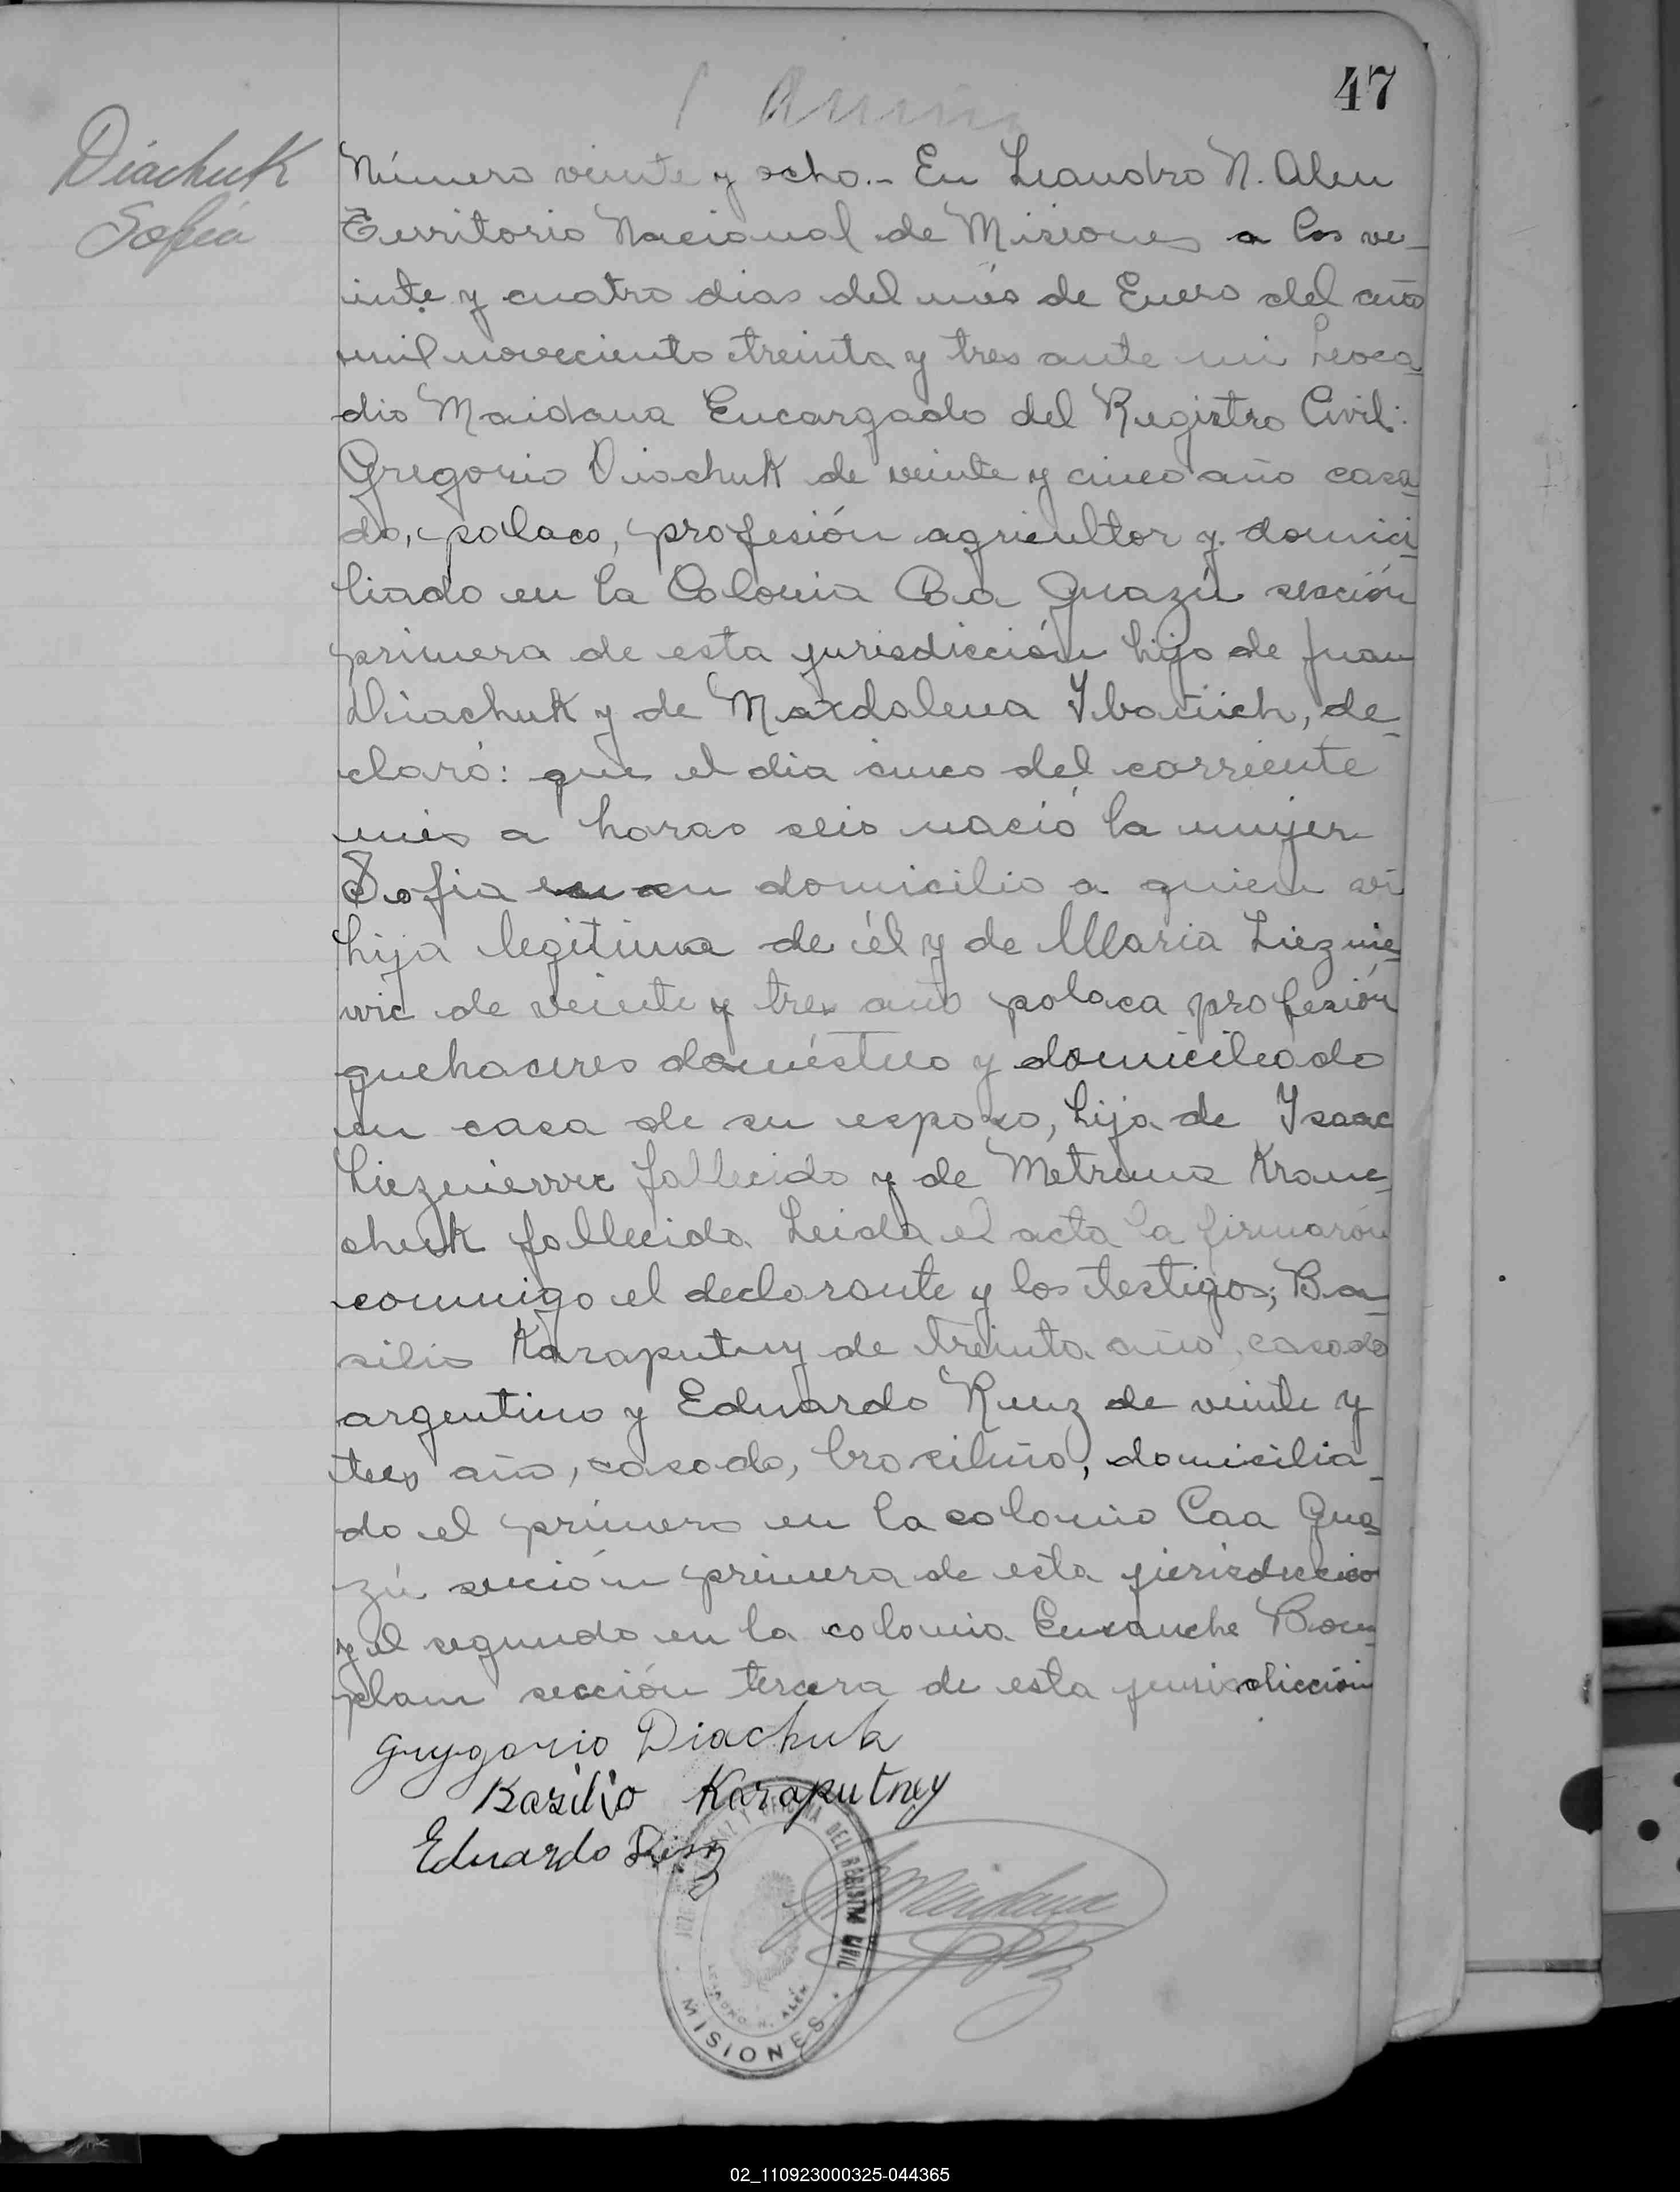 47
Diachuk
Sofia
Número veinte y ocho.- En Leandro N. Alen
Territorio Nacional de Misiones a los ve-
inte y cuatro dias del més de Enero del año
mil novecientos treinta y tres ante mi Leoca-
dio Maidana Encargado del Registro Civil:
Gregorio Diachuk de veinte y cinco año casa-
do, polaco, profesión agricultor y domici-
liado en la Colonia Caa Guazú sección
primera de esta jurisdicción hijo de Juan
Diachuk y de Maxdalena Ybanich, de-
claró: que el dia cinco del corriente
més a horas seis nació la mujer
Sofia en su domicilio a quien vi
hija legitima de él y de Maria Lieznie-
wic de veinte y tres año polaca profesión
quehaceres doméstico y domiciliado
en casa de su esposo, hija de Ysaac
Liezniewic fallecido y de Metruna Krane-
chuk fallecida Leida el acta la firmarón
conmigo el declarante y los testigos; Ba-
silio Karaputny de treinta año, casado
argentino y Eduardo Ruiz de veinte y
tres año, casado, brasileño, domicilia-
do el primero en la colonia Caa Gua-
zú sección primera de esta jurisdiccion
y el segundo en la colonia Ensanche Bon-
plan sección tercera de esta jurisdicción
Grygorio Diachuk
Basilio Karaputney
Eduardo
Maidana
DEL REGISTRO CIVIL
LEANDRO N. ALEM
MISIONES
02_110923000325-044365